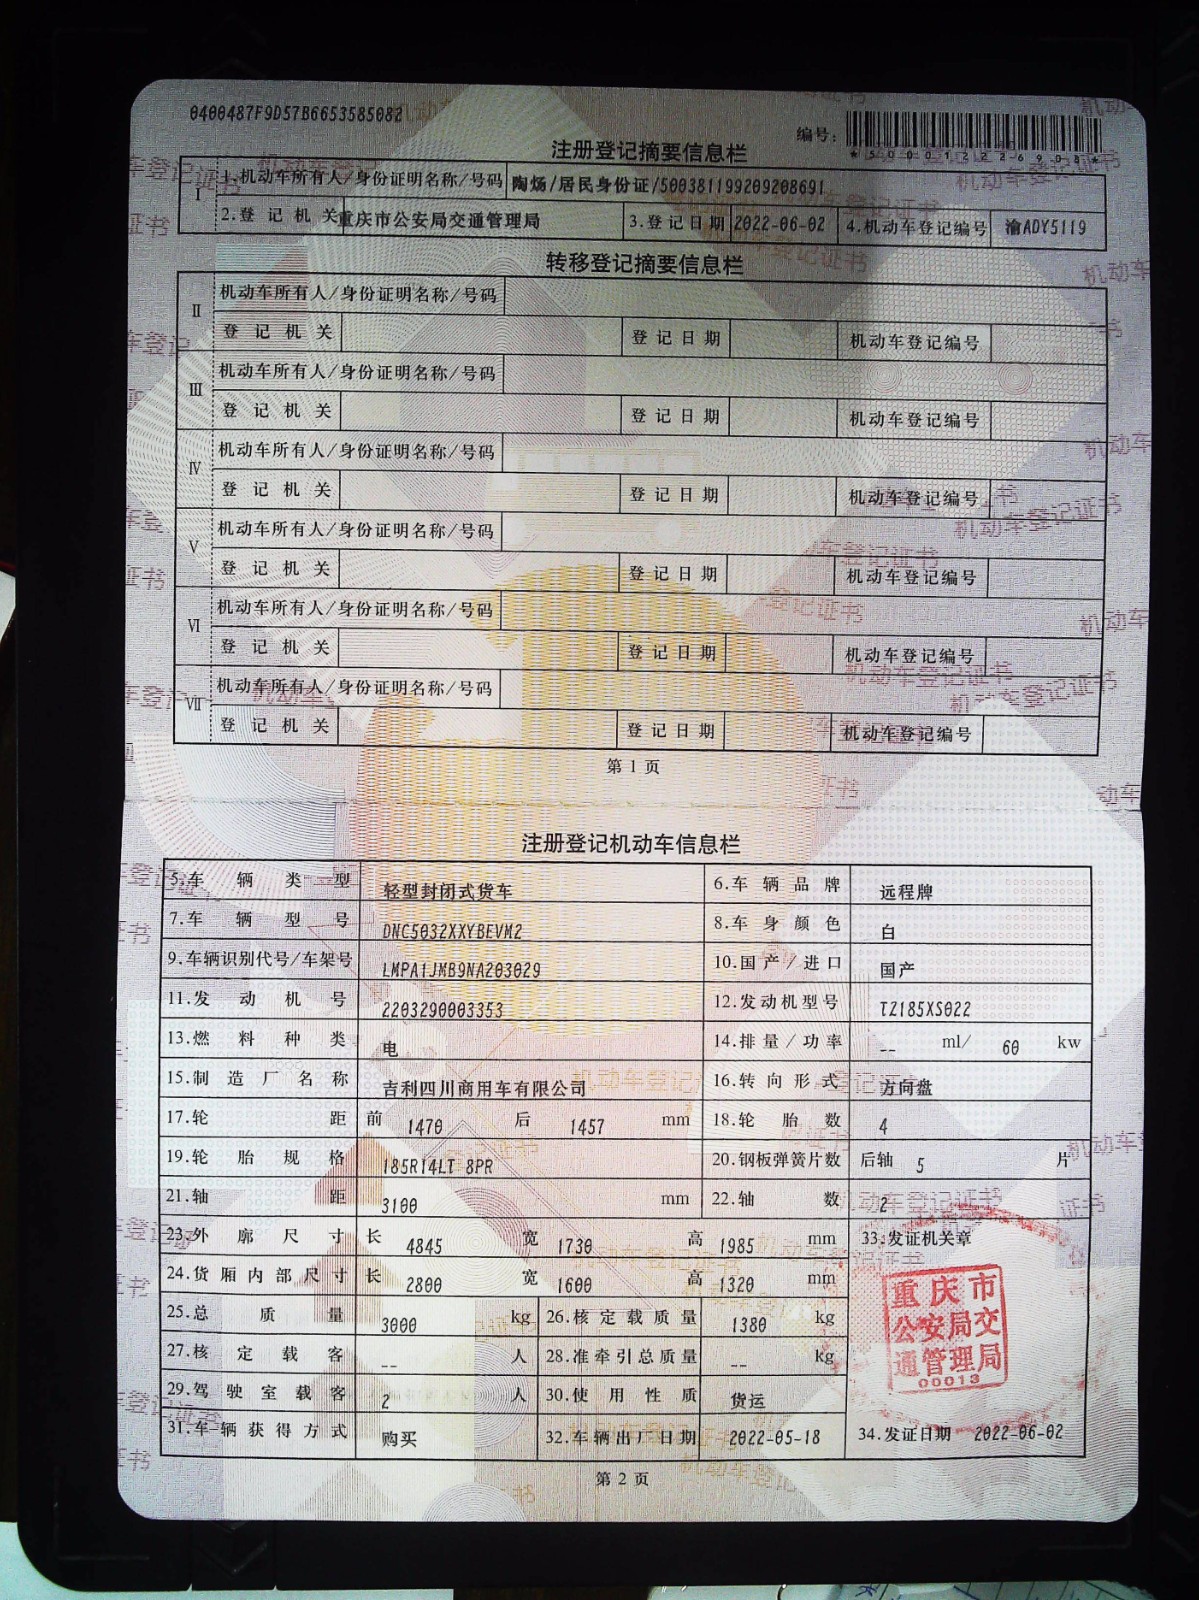 0400487F9D57B6653585082
编号:
*500012226908*
注册登记摘要信息栏
I 1.机动车所有人/身份证明名称/号码 陶炀/居民身份证/500381199209208691
2.登记机关 重庆市公安局交通管理局 3.登记日期 2022-06-02 4.机动车登记编号 渝ADY5119
转移登记摘要信息栏
II 机动车所有人/身份证明名称/号码
登记机关 登记日期 机动车登记编号
III 机动车所有人/身份证明名称/号码
登记机关 登记日期 机动车登记编号
IV 机动车所有人/身份证明名称/号码
登记机关 登记日期 机动车登记编号
V 机动车所有人/身份证明名称/号码
登记机关 登记日期 机动车登记编号
VI 机动车所有人/身份证明名称/号码
登记机关 登记日期 机动车登记编号
VII 机动车所有人/身份证明名称/号码
登记机关 登记日期 机动车登记编号
第 1 页
注册登记机动车信息栏
5.车辆类型 轻型封闭式货车 6.车辆品牌 远程牌
7.车辆型号 DNC5032XXYBEVM2 8.车身颜色 白
9.车辆识别代号/车架号 LMPA1JMB9NA203029 10.国产/进口 国产
11.发动机号 2203290003353 12.发动机型号 TZ185XS022
13.燃料种类 电 14.排量/功率 -- ml/ 60 kw
15.制造厂名称 吉利四川商用车有限公司 16.转向形式 方向盘
17.轮距 前 1470 后 1457 mm 18.轮胎数 4
19.轮胎规格 185R14LT 8PR 20.钢板弹簧片数 后轴 5 片
21.轴距 3100 mm 22.轴数 2
23.外廓尺寸 长 4845 宽 1730 高 1985 mm 33.发证机关章
24.货厢内部尺寸 长 2800 宽 1600 高 1320 mm
25.总质量 3000 kg 26.核定载质量 1380 kg
27.核定载客 -- 人 28.准牵引总质量 -- kg
29.驾驶室载客 2 人 30.使用性质 货运
31.车辆获得方式 购买 32.车辆出厂日期 2022-05-18 34.发证日期 2022-06-02
重庆市
公安局交
通管理局
00013
第 2 页